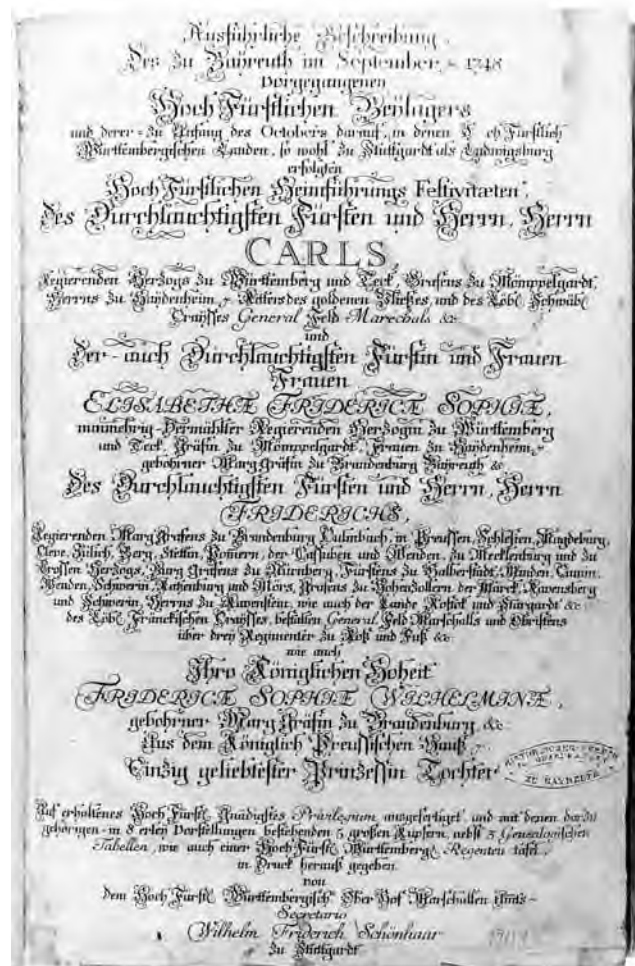 Ausführliche Beschreibung,
Des zu Bayreuth im September, 1748
Vorgegangenen
Hoch Fürstlichen Beylagers
und derer zu Anfang des Octobers darauf, in denen Hoch Fürstlich
Württembergischen Landen, so wohl zu Stuttgardt als Ludwigsburg
erfolgten
Hoch Fürstlichen Heimführungs Festivitæten,
Des Durchlauchtigsten Fürsten und Herrn, Herrn
CARLS,
Regierenden Herzogs zu Württemberg und Teck, Grafens zu Mömppelgardt,
Herrns zu Haydenheim Ritters des goldenen Vließes, und des Löbl. Schwäb.
Crayses General Feld Marechals &c
und
Der auch Durchlauchtigsten Fürstin und Frauen
Frauen
ELISABETHÆ FRIDERICÆ SOPHIÆ,
nunmehrig Vermählter Regierenden Herzogin zu Württemberg
und Teck, Gräfin zu Mömppelgardt, Frauen zu Haydenheim,
gebohrner Marg Gräfin zu Brandenburg Bayreuth &c
Des Durchlauchtigsten Fürsten und Herrn, Herrn
FRIDERICHS,
Regierenden Marg Grafens zu Brandenburg Culmbach, in Preussen, Schlesien, Magdeburg,
Cleve, Jülich, Berg, Stettin, Pom̄ern, der Cassuben und Wenden, zu Mecklenburg und zu
Crossen Herzogs, Burg Grafens zu Nürnberg, Fürstens zu Halberstadt, Minden, Camin,
Wenden, Schwerin, Ratzenburg und Mörs, Grafens zu Hohenzollern, der Marck, Ravensberg
und Schwerin, Herrns zu Ravenstein, wie auch der Lande Rostock und Stargardt &c
des Löbl. Fränckischen Crayses, bestallten General Feld Marschalls und Obristens
über drey Regimenter zu Roß und Fuß &c
wie auch
Ihro Königlichen Hoheit
FRIDERICÆ SOPHIÆ WILHELMINÆ,
gebohrner Marg Gräfin zu Brandenburg &c
Aus dem Königlich Preussischen Hauß,
Einzig geliebtester Prinzessin Tochter
HISTORISCHER VEREIN
ZU BAYREUTH
Auf erhaltenes Hoch Fürstl. Gnädigstes Privilegium ausgefertiget, und mit denen darzu
gehörigen in 8 erley Vorstellungen bestehenden 5 großen Kupfern, nebst 3 Genealogischen
Tabellen, wie auch einer Hoch Fürstl. Württemberg. Regenten tafel,
in Druck herauß gegeben
von
dem Hoch Fürstl. Württembergisch. Ober Hof Marschallen Amts-
Secretario
Wilhelm Friderich Schönhaar
zu Stuttgardt